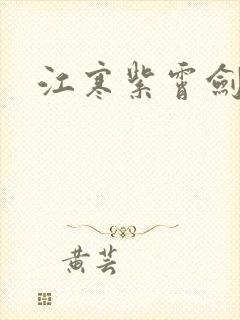 江寒紫霄劍
黄芸